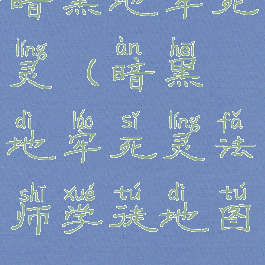 暗黑地牢死
líng àn hēi
灵（暗黑
dì láo sǐ líng fǎ
地牢死灵法
shī xué tú dì tú
师学徒地图